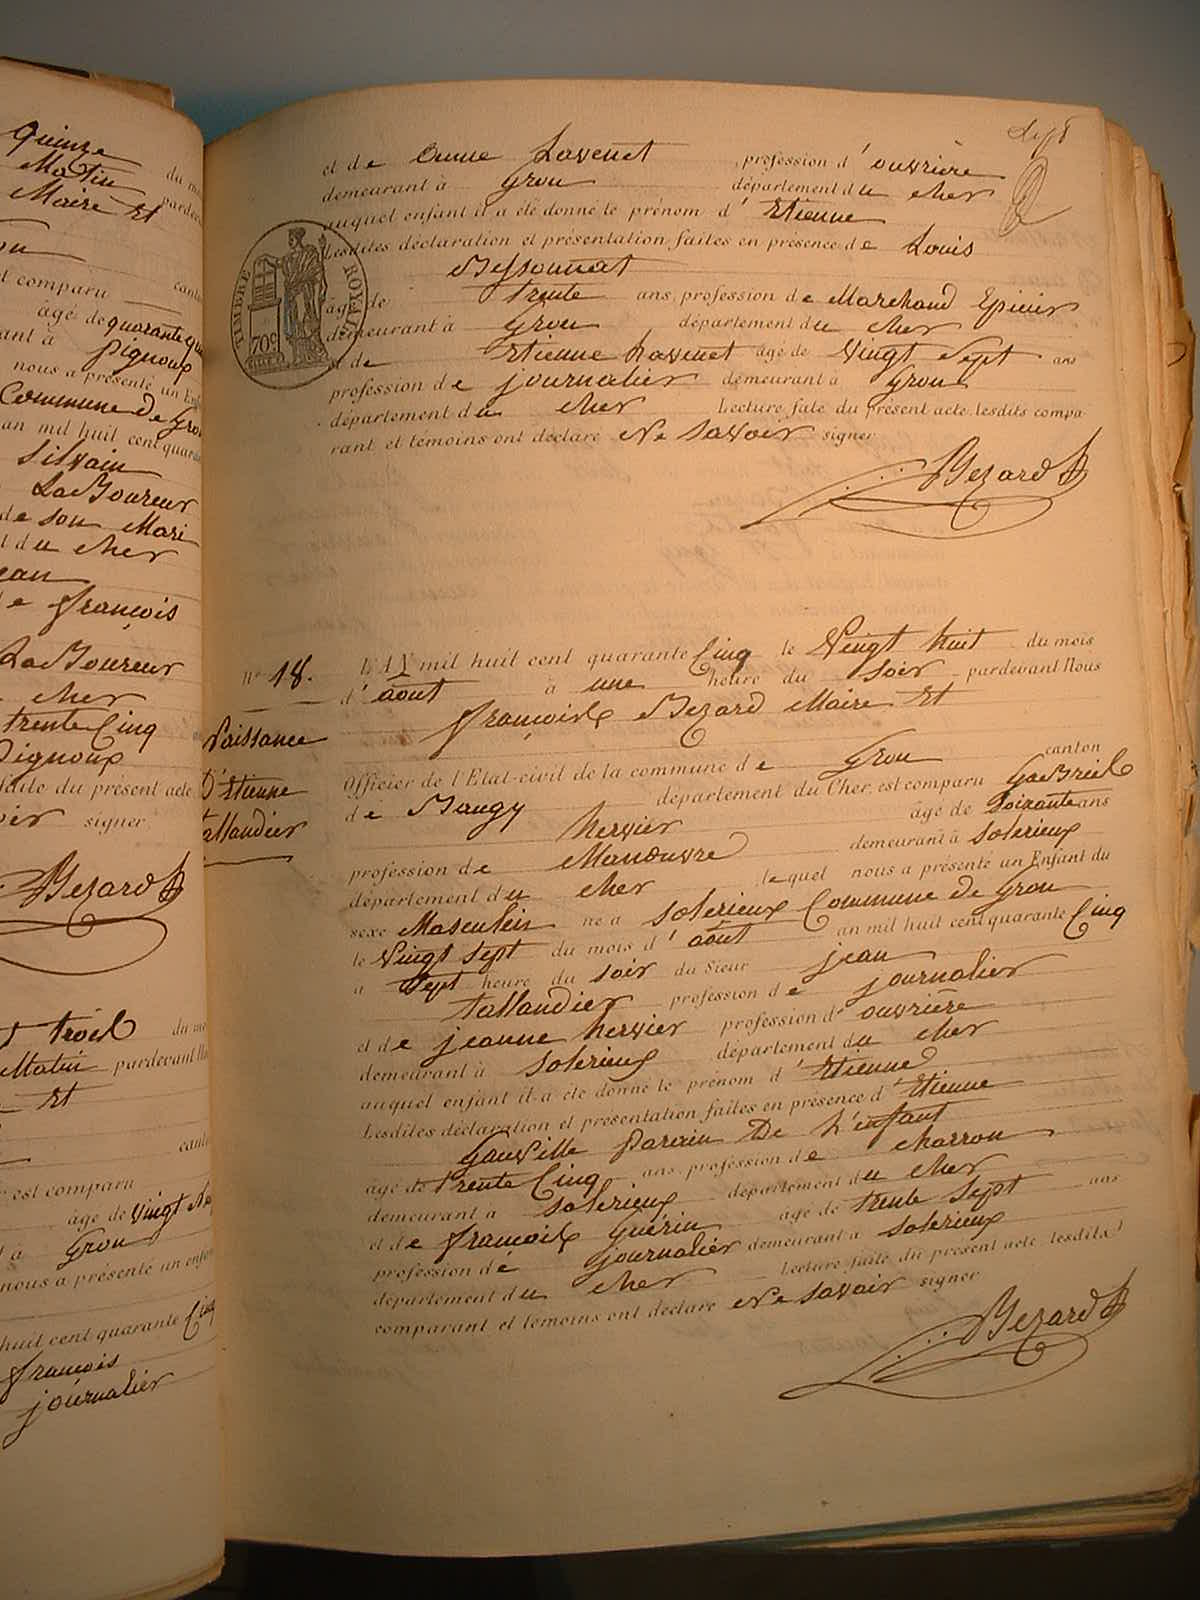 Quinze
Matin du m
Maire Et pardev
on
t comparu cant
âgé de quarante qu
ant à Pignoux
nous a présenté un Enf
Commune de Gron
an mil huit cent quara
Silvain
LaBoureur
de son Mari
t du cher
ean
de françois
LaBoureur
cher
trente Cinq
Pignoux
faite du présent acte
oir signer
Bezard
troix du m
Matin pardevant No
Et
canto
est comparu
âgé de Vingt Ne
à Gron
nous a présenté un enfan
huit cent quarante Cinq
françois
journalier
sept
et de Anne Lavenet profession d'ouvrière
demeurant à Gron département du cher
auquel enfant il a été donné le prénom d'Etienne
Lesdites déclaration et présentation faites en présence de Louis
Bessonnat
âgé de trente ans, profession de Marchand Epicier
demeurant à Gron département du cher
et de Etienne Lavenet âgé de Vingt Sept ans
profession de journalier demeurant à Gron
département du cher Lecture faite du présent acte, lesdits compa-
rant et témoins ont déclaré Ne savoir signer
Bezard
TIMBRE ROYAL
70c
No 18. L'AN mil huit cent quarante Cinq le Vingt huit du mois
d'août à une heure du soir pardevant Nous
françois Bezard Maire Et
Naissance
D'Etienne
tallandier
Officier de l'Etat-civil de la commune de Gron canton
de Baugy département du Cher, est comparu GaBriel
hervier âgé de soixante ans
profession de Manoeuvre demeurant à solerieux
département du cher lequel nous a présenté un Enfant du
sexe Masculin né à solerieux Commune de Gron
le Vingt sept du mois d'août an mil huit cent quarante Cinq
à sept heure du soir du Sieur jean
tallandier profession de journalier
et de jeanne hervier profession d'ouvrière
demeurant à solerieux département du cher
auquel enfant il a été donné le prénom d'Etienne
Lesdites déclaration et présentation faites en présence d'Etienne
Gauville Parrain De L'enfant
âgé de trente Cinq ans, profession de charron
demeurant à solerieux département du cher
et de françois Guérin âgé de trente sept ans
profession de journalier demeurant à solerieux
département du cher Lecture faite du présent acte, lesdits
comparant et témoins ont déclaré Ne savoir signer
Bezard